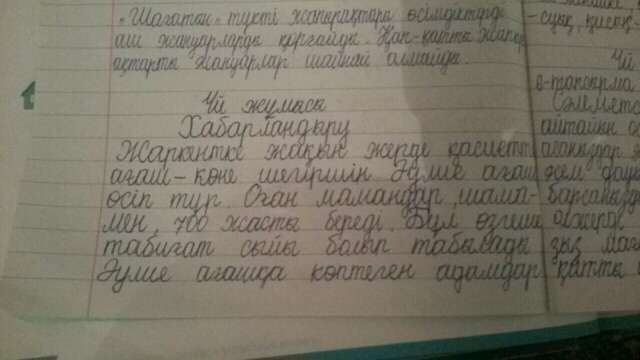 "Шағатын" түкті жапырақтары өсімдіктерді
аш жануарларды қорғайды. Қап-қатты жапыр
ақтарты жануарлар шайнай алмайды.
Үй жұмысы
Хабарландыру
Жаркентке жақын жерде қасиетті
ағаш - көне шегіршін Әулие ағаш
өсіп тұр. Оған мамандар шама-
мен 700 жасты береді. Бұл өзгеше
табиғат сыйы болып табылады
Әулие ағашқа көптеген адамдар
Үй
айтайын
барсаңызда
қатты